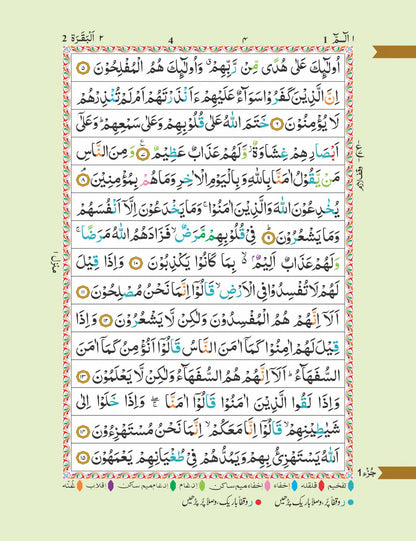 الٓـمّٓ ١ 1 ۴ 4 ٢ اَلْبَقَرَة 2
اُولٰٓئِكَ عَلٰى هُدًى مِّنْ رَّبِّهِمْ ۙ وَاُولٰٓئِكَ هُمُ الْمُفْلِحُوْنَ ۝۵
اِنَّ الَّذِيْنَ كَفَرُوْا سَوَآءٌ عَلَيْهِمْ ءَاَنْذَرْتَهُمْ اَمْ لَمْ تُنْذِرْهُمْ
لَا يُؤْمِنُوْنَ ۝۶ خَتَمَ اللّٰهُ عَلٰى قُلُوْبِهِمْ وَعَلٰى سَمْعِهِمْ ؕ وَعَلٰٓى
اَبْصَارِهِمْ غِشَاوَةٌ ؗ وَّلَهُمْ عَذَابٌ عَظِيْمٌ ۝۷ وَمِنَ النَّاسِ
مَنْ يَّقُوْلُ اٰمَنَّا بِاللّٰهِ وَبِالْيَوْمِ الْاٰخِرِ وَمَا هُمْ بِمُؤْمِنِيْنَ ۝۸
يُخٰدِعُوْنَ اللّٰهَ وَالَّذِيْنَ اٰمَنُوْا ۚ وَمَا يَخْدَعُوْنَ اِلَّآ اَنْفُسَهُمْ
وَمَا يَشْعُرُوْنَ ۝۹ فِيْ قُلُوْبِهِمْ مَّرَضٌ ۙ فَزَادَهُمُ اللّٰهُ مَرَضًا ۚ
وَلَهُمْ عَذَابٌ اَلِيْمٌۢ ۙ۬ بِمَا كَانُوْا يَكْذِبُوْنَ ۝۱۰ وَاِذَا قِيْلَ
لَهُمْ لَا تُفْسِدُوْا فِى الْاَرْضِ ۙ قَالُوْٓا اِنَّمَا نَحْنُ مُصْلِحُوْنَ ۝۱۱
اَلَآ اِنَّهُمْ هُمُ الْمُفْسِدُوْنَ وَلٰكِنْ لَّا يَشْعُرُوْنَ ۝۱۲ وَاِذَا
قِيْلَ لَهُمْ اٰمِنُوْا كَمَآ اٰمَنَ النَّاسُ قَالُوْٓا اَنُؤْمِنُ كَمَآ اٰمَنَ
السُّفَهَآءُ ؕ اَلَآ اِنَّهُمْ هُمُ السُّفَهَآءُ وَلٰكِنْ لَّا يَعْلَمُوْنَ ۝۱۳
وَاِذَا لَقُوا الَّذِيْنَ اٰمَنُوْا قَالُوْٓا اٰمَنَّا ۖۚ وَاِذَا خَلَوْا اِلٰى
شَيٰطِيْنِهِمْ ۙ قَالُوْٓا اِنَّا مَعَكُمْ ۙ اِنَّمَا نَحْنُ مُسْتَهْزِءُوْنَ ۝۱۴
اَللّٰهُ يَسْتَهْزِئُ بِهِمْ وَيَمُدُّهُمْ فِيْ طُغْيَانِهِمْ يَعْمَهُوْنَ ۝۱۵
منزل ١
جُزء 1
تفخیم قلقلہ اخفاء اخفاء میم ساکن ادغام ادغام میم ساکن اقلاب غُنّہ
ر وقفاً باریک، وصلاً پُر پڑھیں ر وقفاً پُر، وصلاً باریک پڑھیں